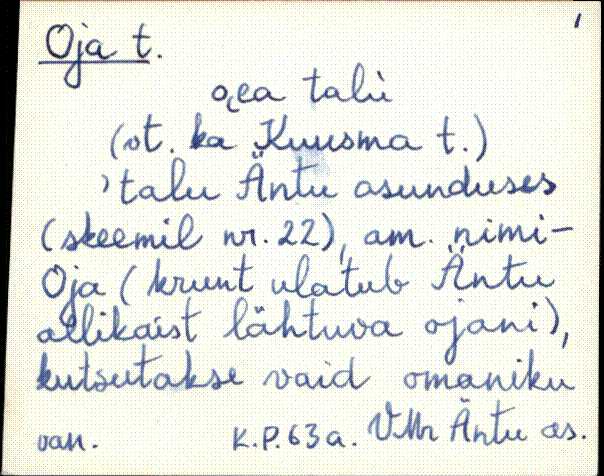 Oja t.
o̬ea talù
(vt. ka Kuusma t.)
'talu Äntu asunduses
(skeemil nr. 22), am. nimi-
Oja (krunt ulatub Äntu
allikaist lähtuva ojani),
kutsutakse vaid omaniku
van. K.P. 63 a. VMr Äntu as.